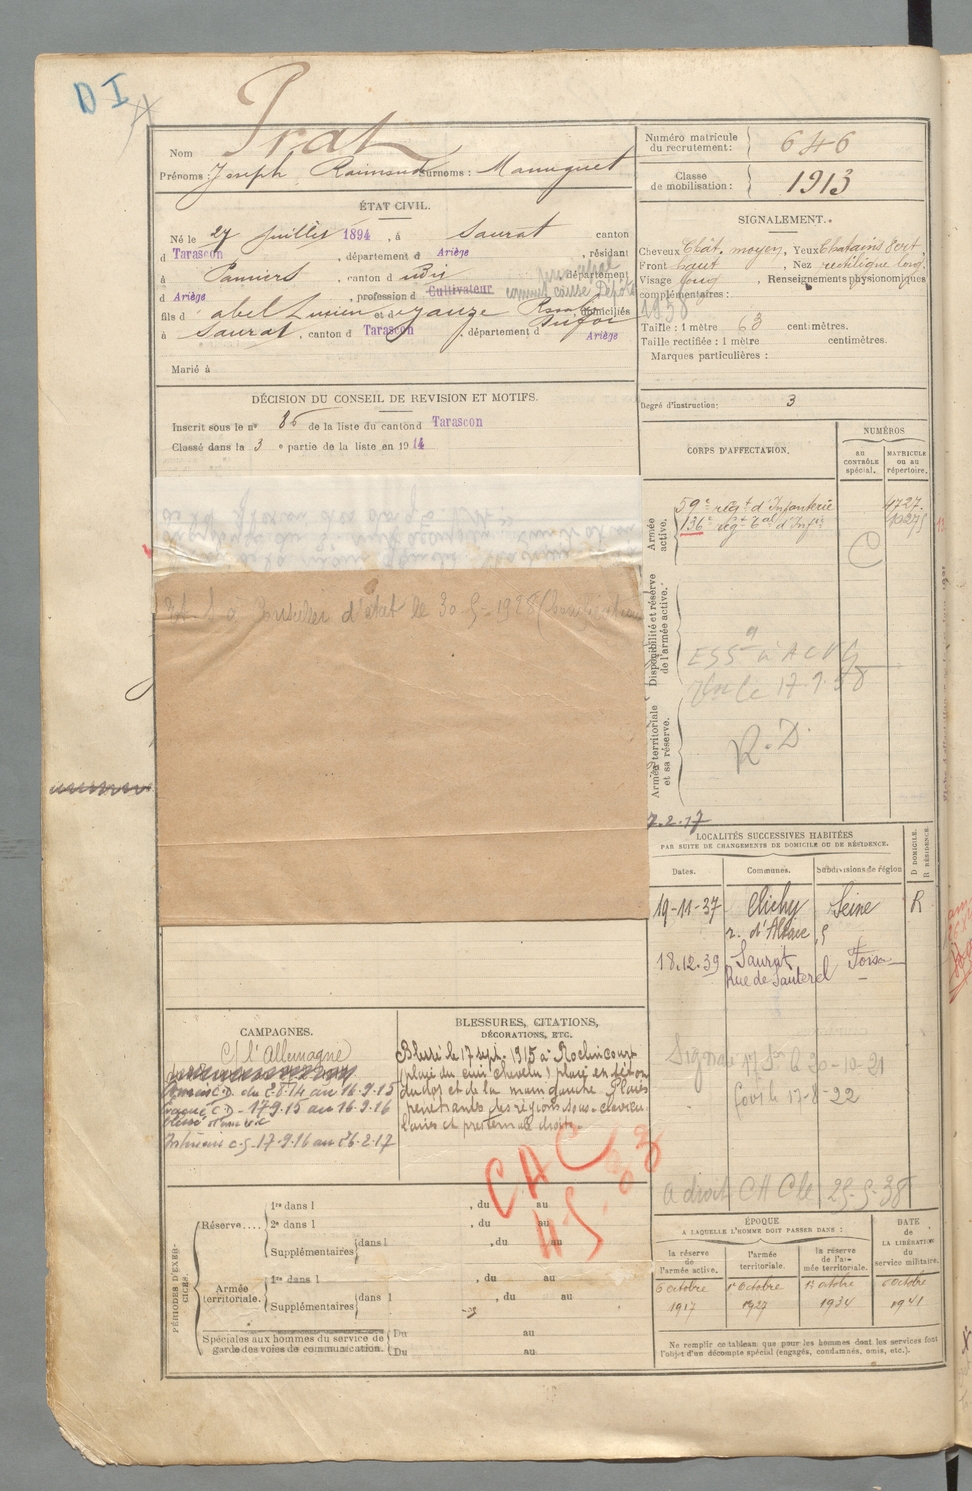 D I
Prat
Nom
Prénoms : Joseph Raimond Surnoms : Mamiguet
ÉTAT CIVIL.
Né le 27 juillet 1894, à Saurat canton
d Tarascon, département d Ariège, résidant
à Pamiers, canton d département
d Ariège, profession d Cultivateur
fils d abel Lucien et d domiciliés
à Saurat, canton d Tarascon, département d Ariège
Marié à
DÉCISION DU CONSEIL DE REVISION ET MOTIFS.
Inscrit sous le nº 86 de la liste du canton d Tarascon
Classé dans la 3 e partie de la liste en 1914
Conseiller d'état le 30-5-1928
CAMPAGNES.
C/ l'Allemagne
C.D. du 2.8.14 au 16.9.15
C.D. 17.9.15 au 16.9.16
Intérieur C.S. 17.9.16 au 26.2.17
BLESSURES, CITATIONS,
DÉCORATIONS, ETC.
Blessé le 17 sept. 1915 à Roclincourt
(plaie du cuir chevelu) plaie en séton
du dos et de la main gauche. Plaies
pénétrantes des régions sous-claviculaires
et présternale droite.
CAC
PÉRIODES D'EXERCICES.
Réserve....
1re dans l , du au
2e dans l , du au
Supplémentaires dans l , du au
Armée territoriale.
1re dans l , du au
Supplémentaires dans l , du au
Spéciales aux hommes du service de garde des voies de communication.
Du au
Du au
Numéro matricule du recrutement : 646
Classe de mobilisation : 1913
SIGNALEMENT.
Cheveux Chât. moyen, Yeux Chatains vert
Front haut, Nez rectiligne long
Visage long, Renseignements physionomiques
complémentaires :
Taille : 1 mètre 63 centimètres.
Taille rectifiée : 1 mètre centimètres.
Marques particulières :
Degré d'instruction : 3
CORPS D'AFFECTATION.
NUMÉROS
AU CONTRÔLE spécial.
MATRICULE OU AU répertoire.
Armée active.
59e regt d'Infanterie 4727
136e regt Tal d'Infie
Disponibilité et réserve de l'armée active.
17.9.38
R.D.
Armée territoriale et sa réserve.
7.2.17
LOCALITÉS SUCCESSIVES HABITÉES
PAR SUITE DE CHANGEMENTS DE DOMICILE OU DE RÉSIDENCE.
Dates. Communes. Subdivisions de région
D DOMICILE. R RÉSIDENCE.
19-11-37 Clichy Seine R
r. d'Alsace, 5
18.12.39 Saurat Foix
Rue de Sauterel
20-10-21
17-8-22
a droit CAC le 25-5-38
ÉPOQUE
A LAQUELLE L'HOMME DOIT PASSER DANS :
DATE DE LA LIBÉRATION du service militaire.
la réserve de l'armée active.
l'armée territoriale.
la réserve de l'armée territoriale.
6 octobre 1er octobre 1er octobre octobre
1917 1927 1934 1941
Ne remplir ce tableau que pour les hommes dont les services font
l'objet d'un décompte spécial (engagés, condamnés, omis, etc.).